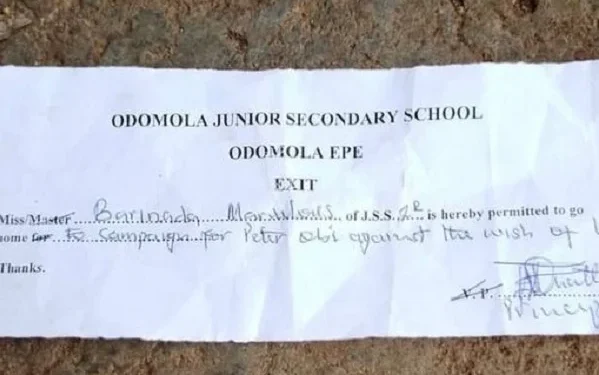 ODOMOLA JUNIOR SECONDARY SCHOOL
ODOMOLA EPE
EXIT
Miss/Master Barinada of J.S.S. 2R is hereby permitted to go
ome for to Campaign for Peter Obi against the wish of
Thanks.
V.P.